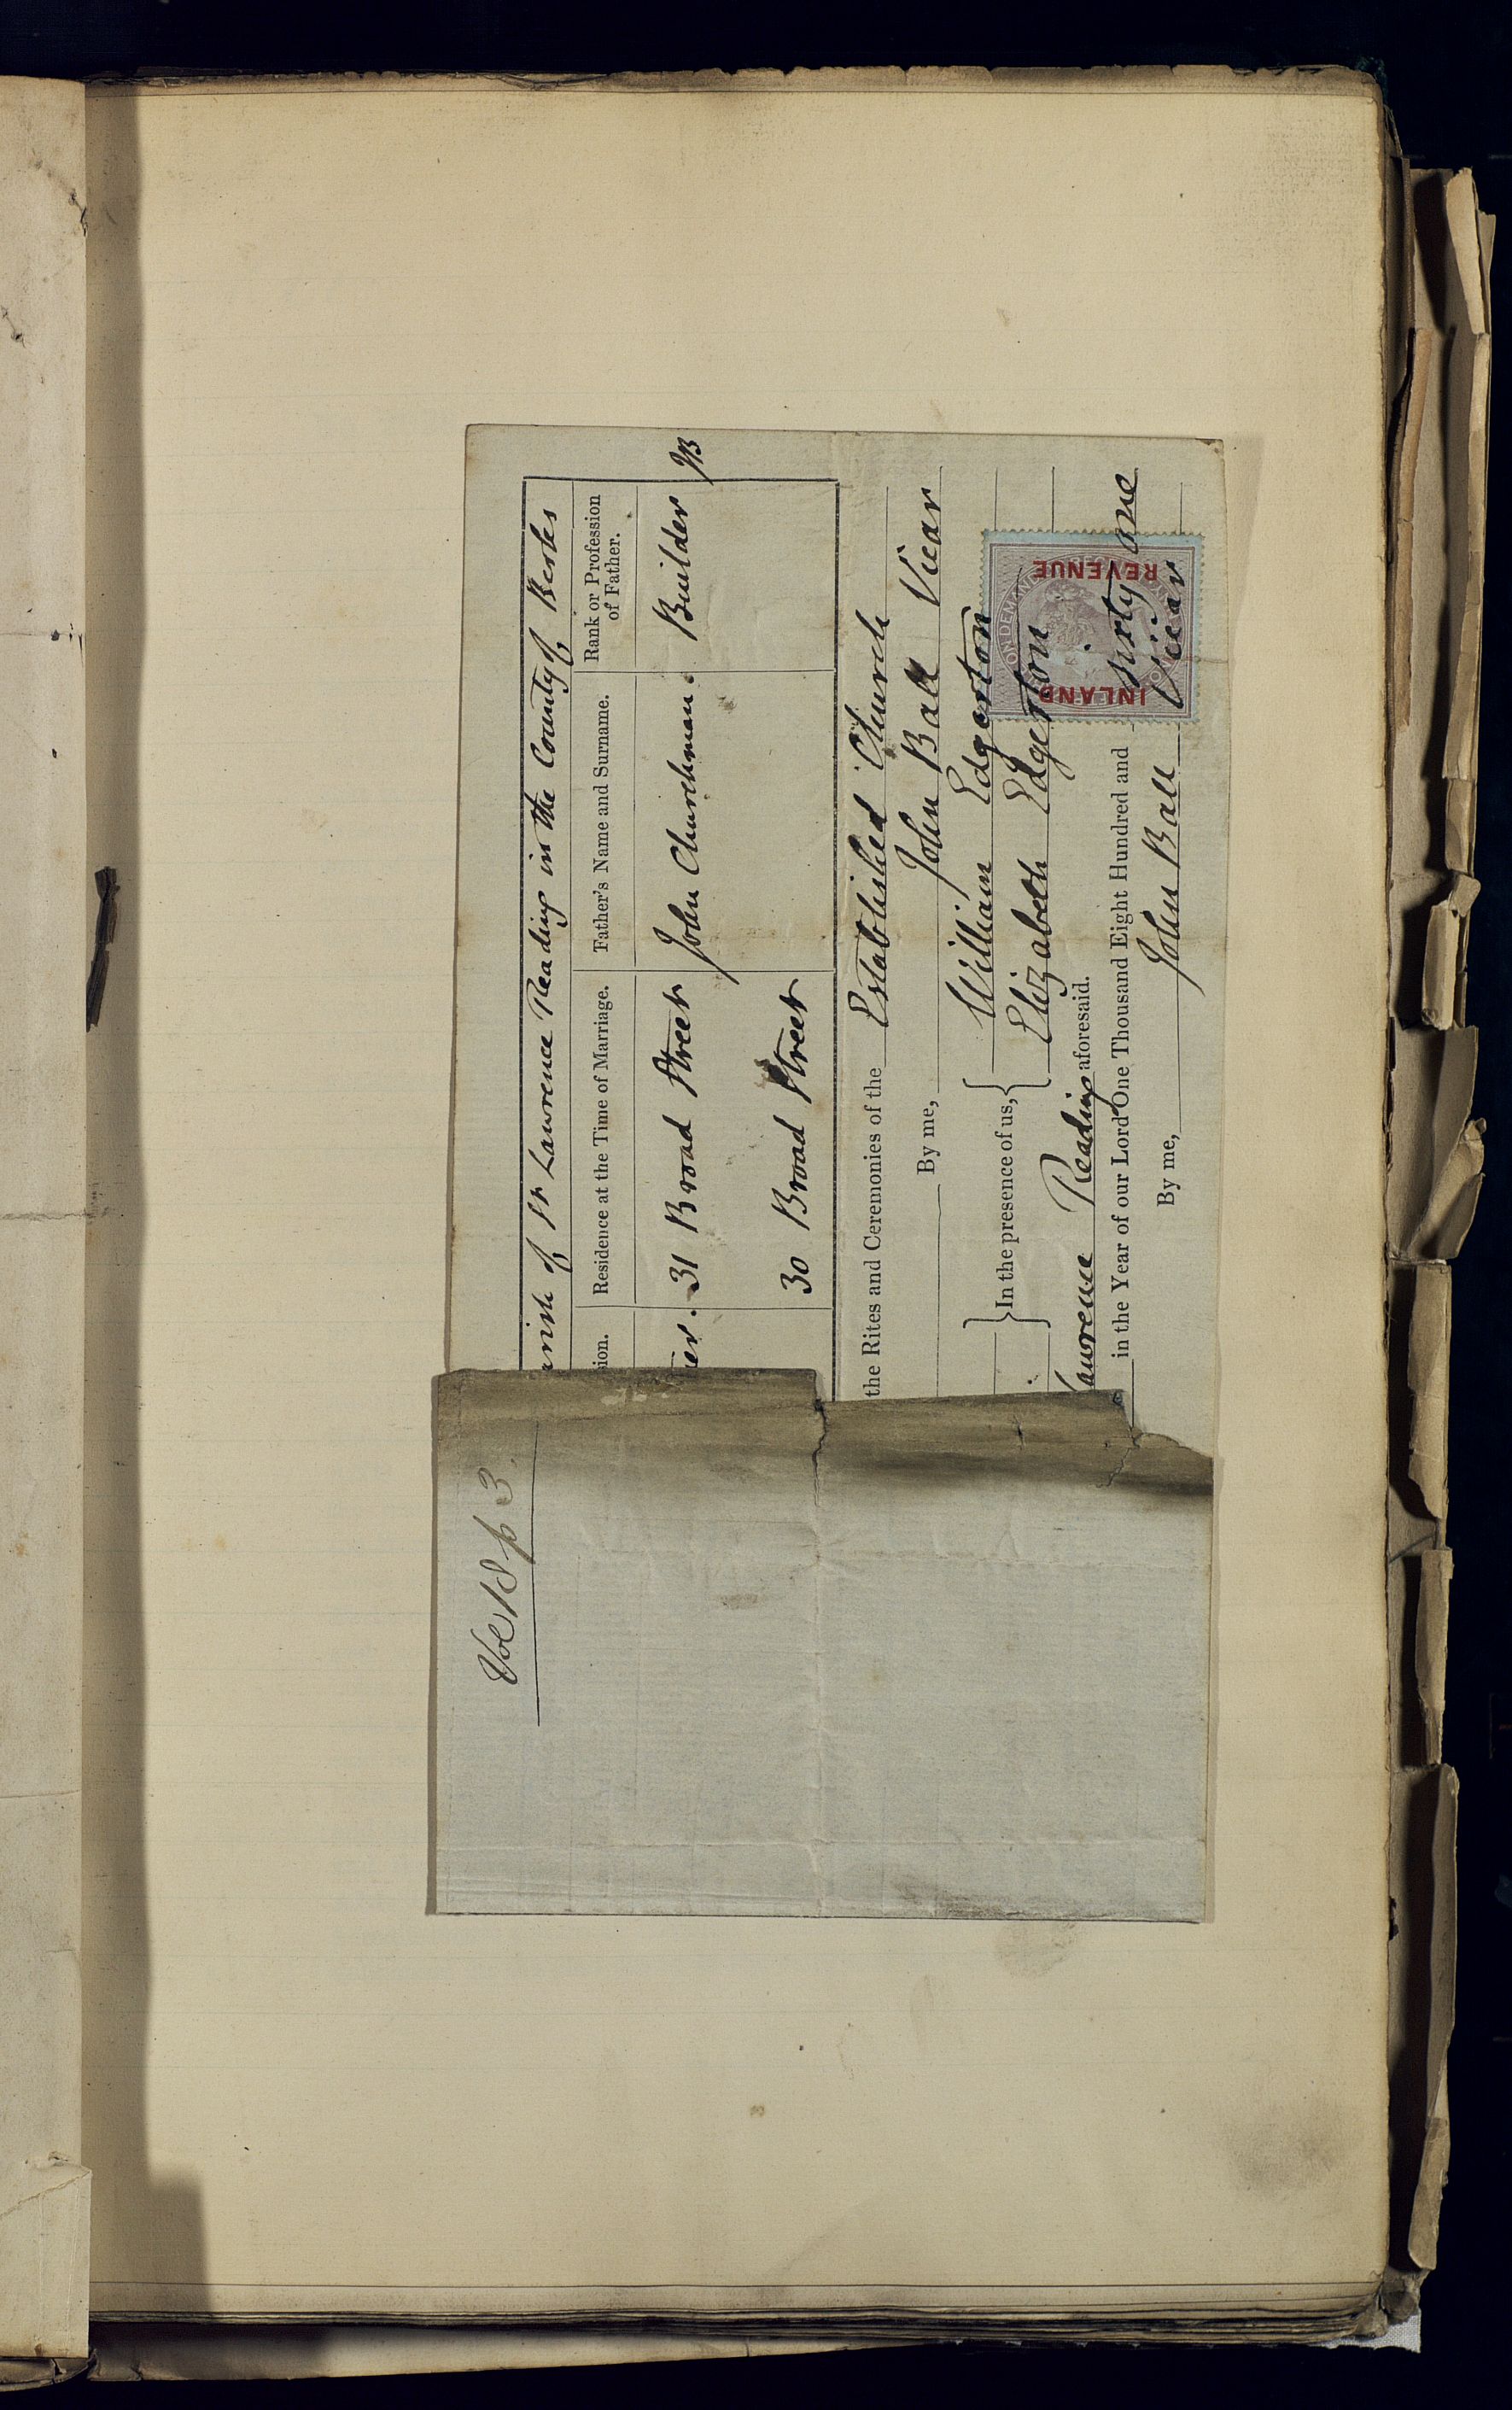 Vol 8 p 3.
arish of St Lawrence Reading in the County of Berks
sion. Residence at the Time of Marriage. Father's Name and Surname. Rank or Profession
of Father.
ier. 31 Broad Street John Churchman. Builder JB
30 Broad Street
the Rites and Ceremonies of the Established Church
By me, John Ball Vicar
In the presence of us, William Edgerton
Elizabeth Edgerton
Lawrence Reading aforesaid.
in the Year of our Lord One Thousand Eight Hundred and sixty one
By me, John Ball Vicar
ON DEMAND
INLAND REVENUE